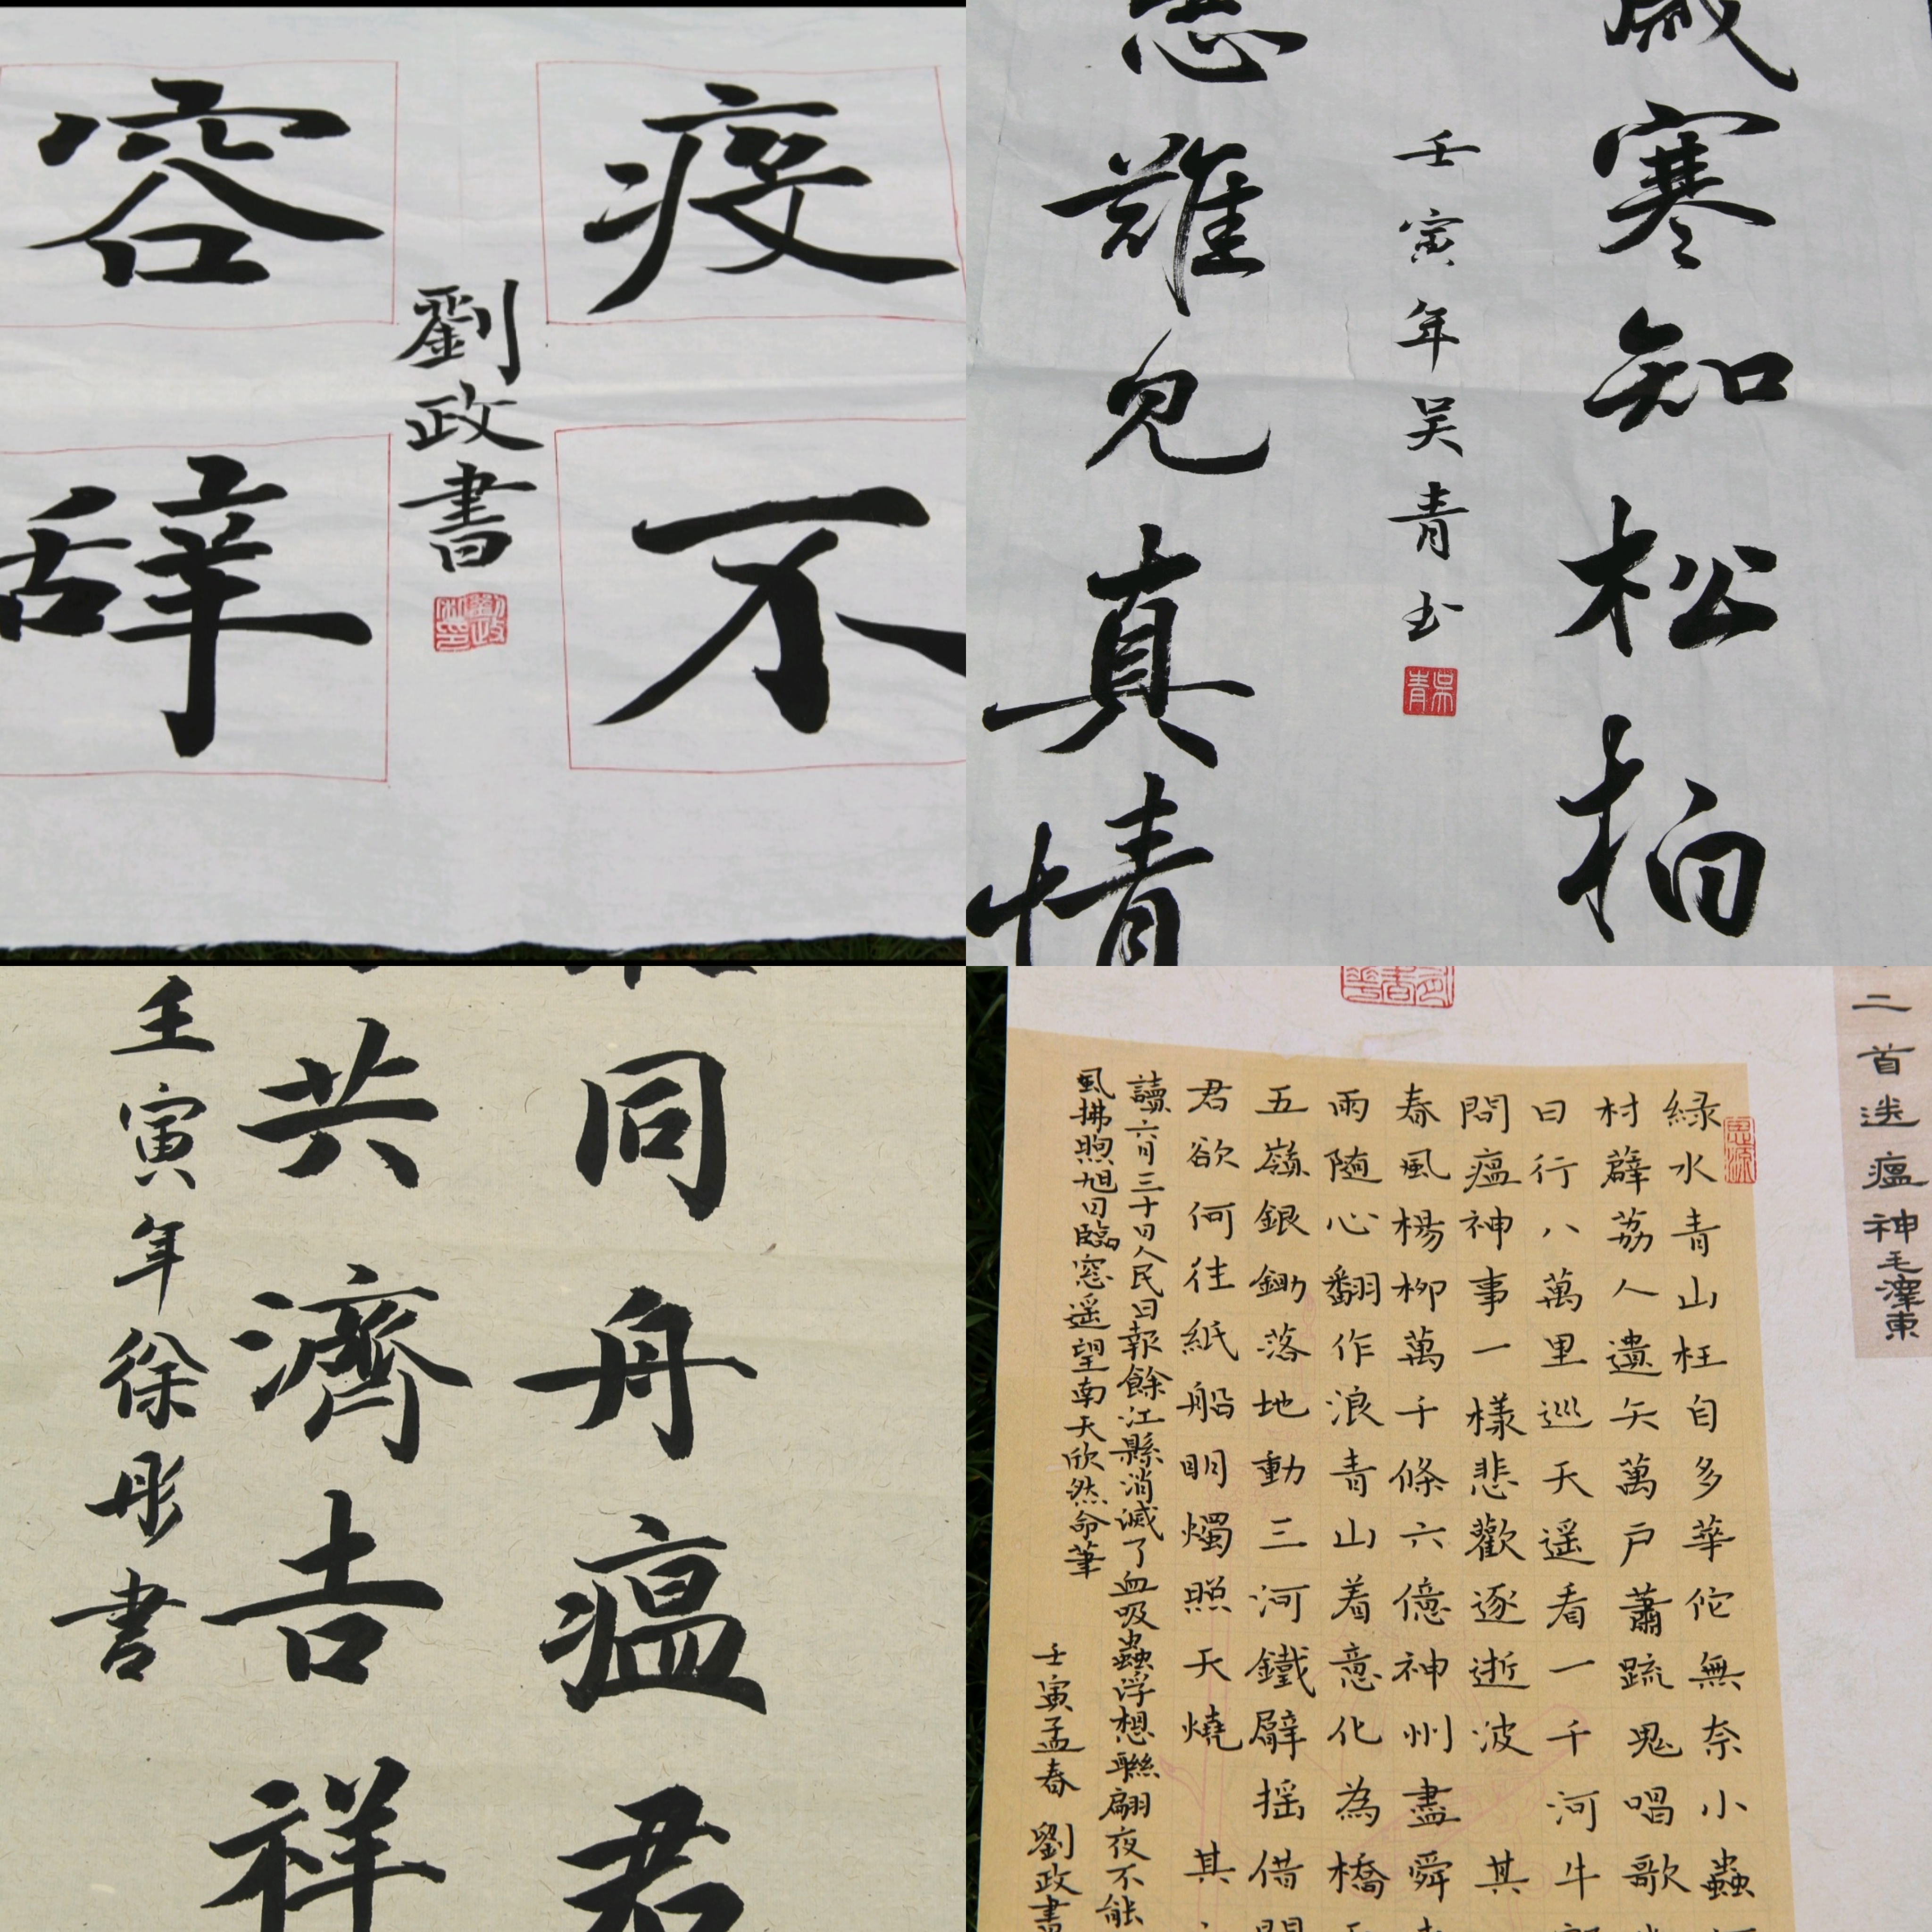 疫不
劉政書
容辞
寒知松柏
壬寅年吴青书
吴青
難見真情
同舟瘟君
共濟吉祥
壬寅年徐彤書
二首送瘟神毛澤東
緑水青山枉自多華佗無奈小蟲
村薜荔人遺矢萬户蕭疏鬼唱歌
日行八萬里巡天遥看一千河牛
問瘟神事一樣悲歡逐逝波其
春風楊柳萬千條六億神州盡舜
雨随心翻作浪青山着意化為橋
五嶺銀鋤落地動三河鐵臂摇借
君欲何往紙船明燭照天燒其
讀六月三十日人民日報餘江縣消滅了血吸蟲浮想聯翩夜不能
風拂煦旭日臨窓遥望南天欣然命筆
壬寅孟春劉政書